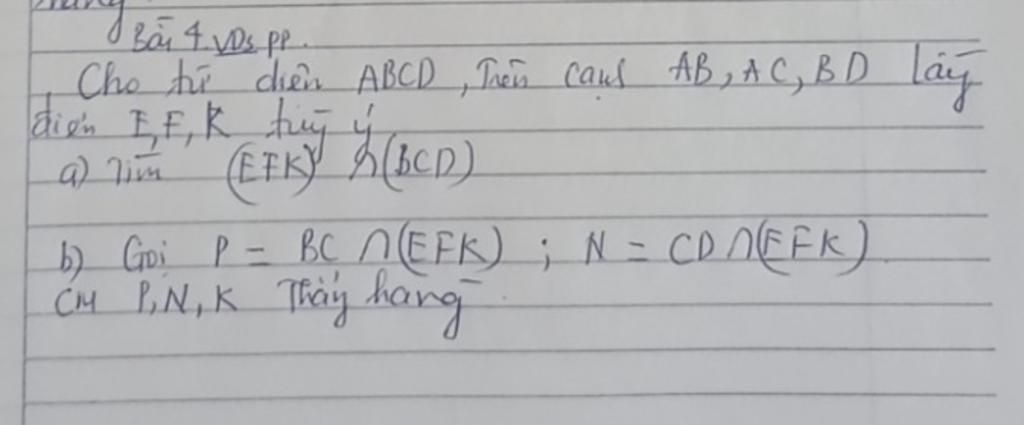 Bài 4. VDs pp.
Cho tứ diện ABCD, Trên cạnh AB, AC, BD lấy
điểm E, F, K tuỳ ý
a) Tìm (EFK) ∩ (BCD)
b) Gọi P = BC ∩ (EFK) ; N = CD ∩ (EFK)
CM P, N, K Thẳng hàng.